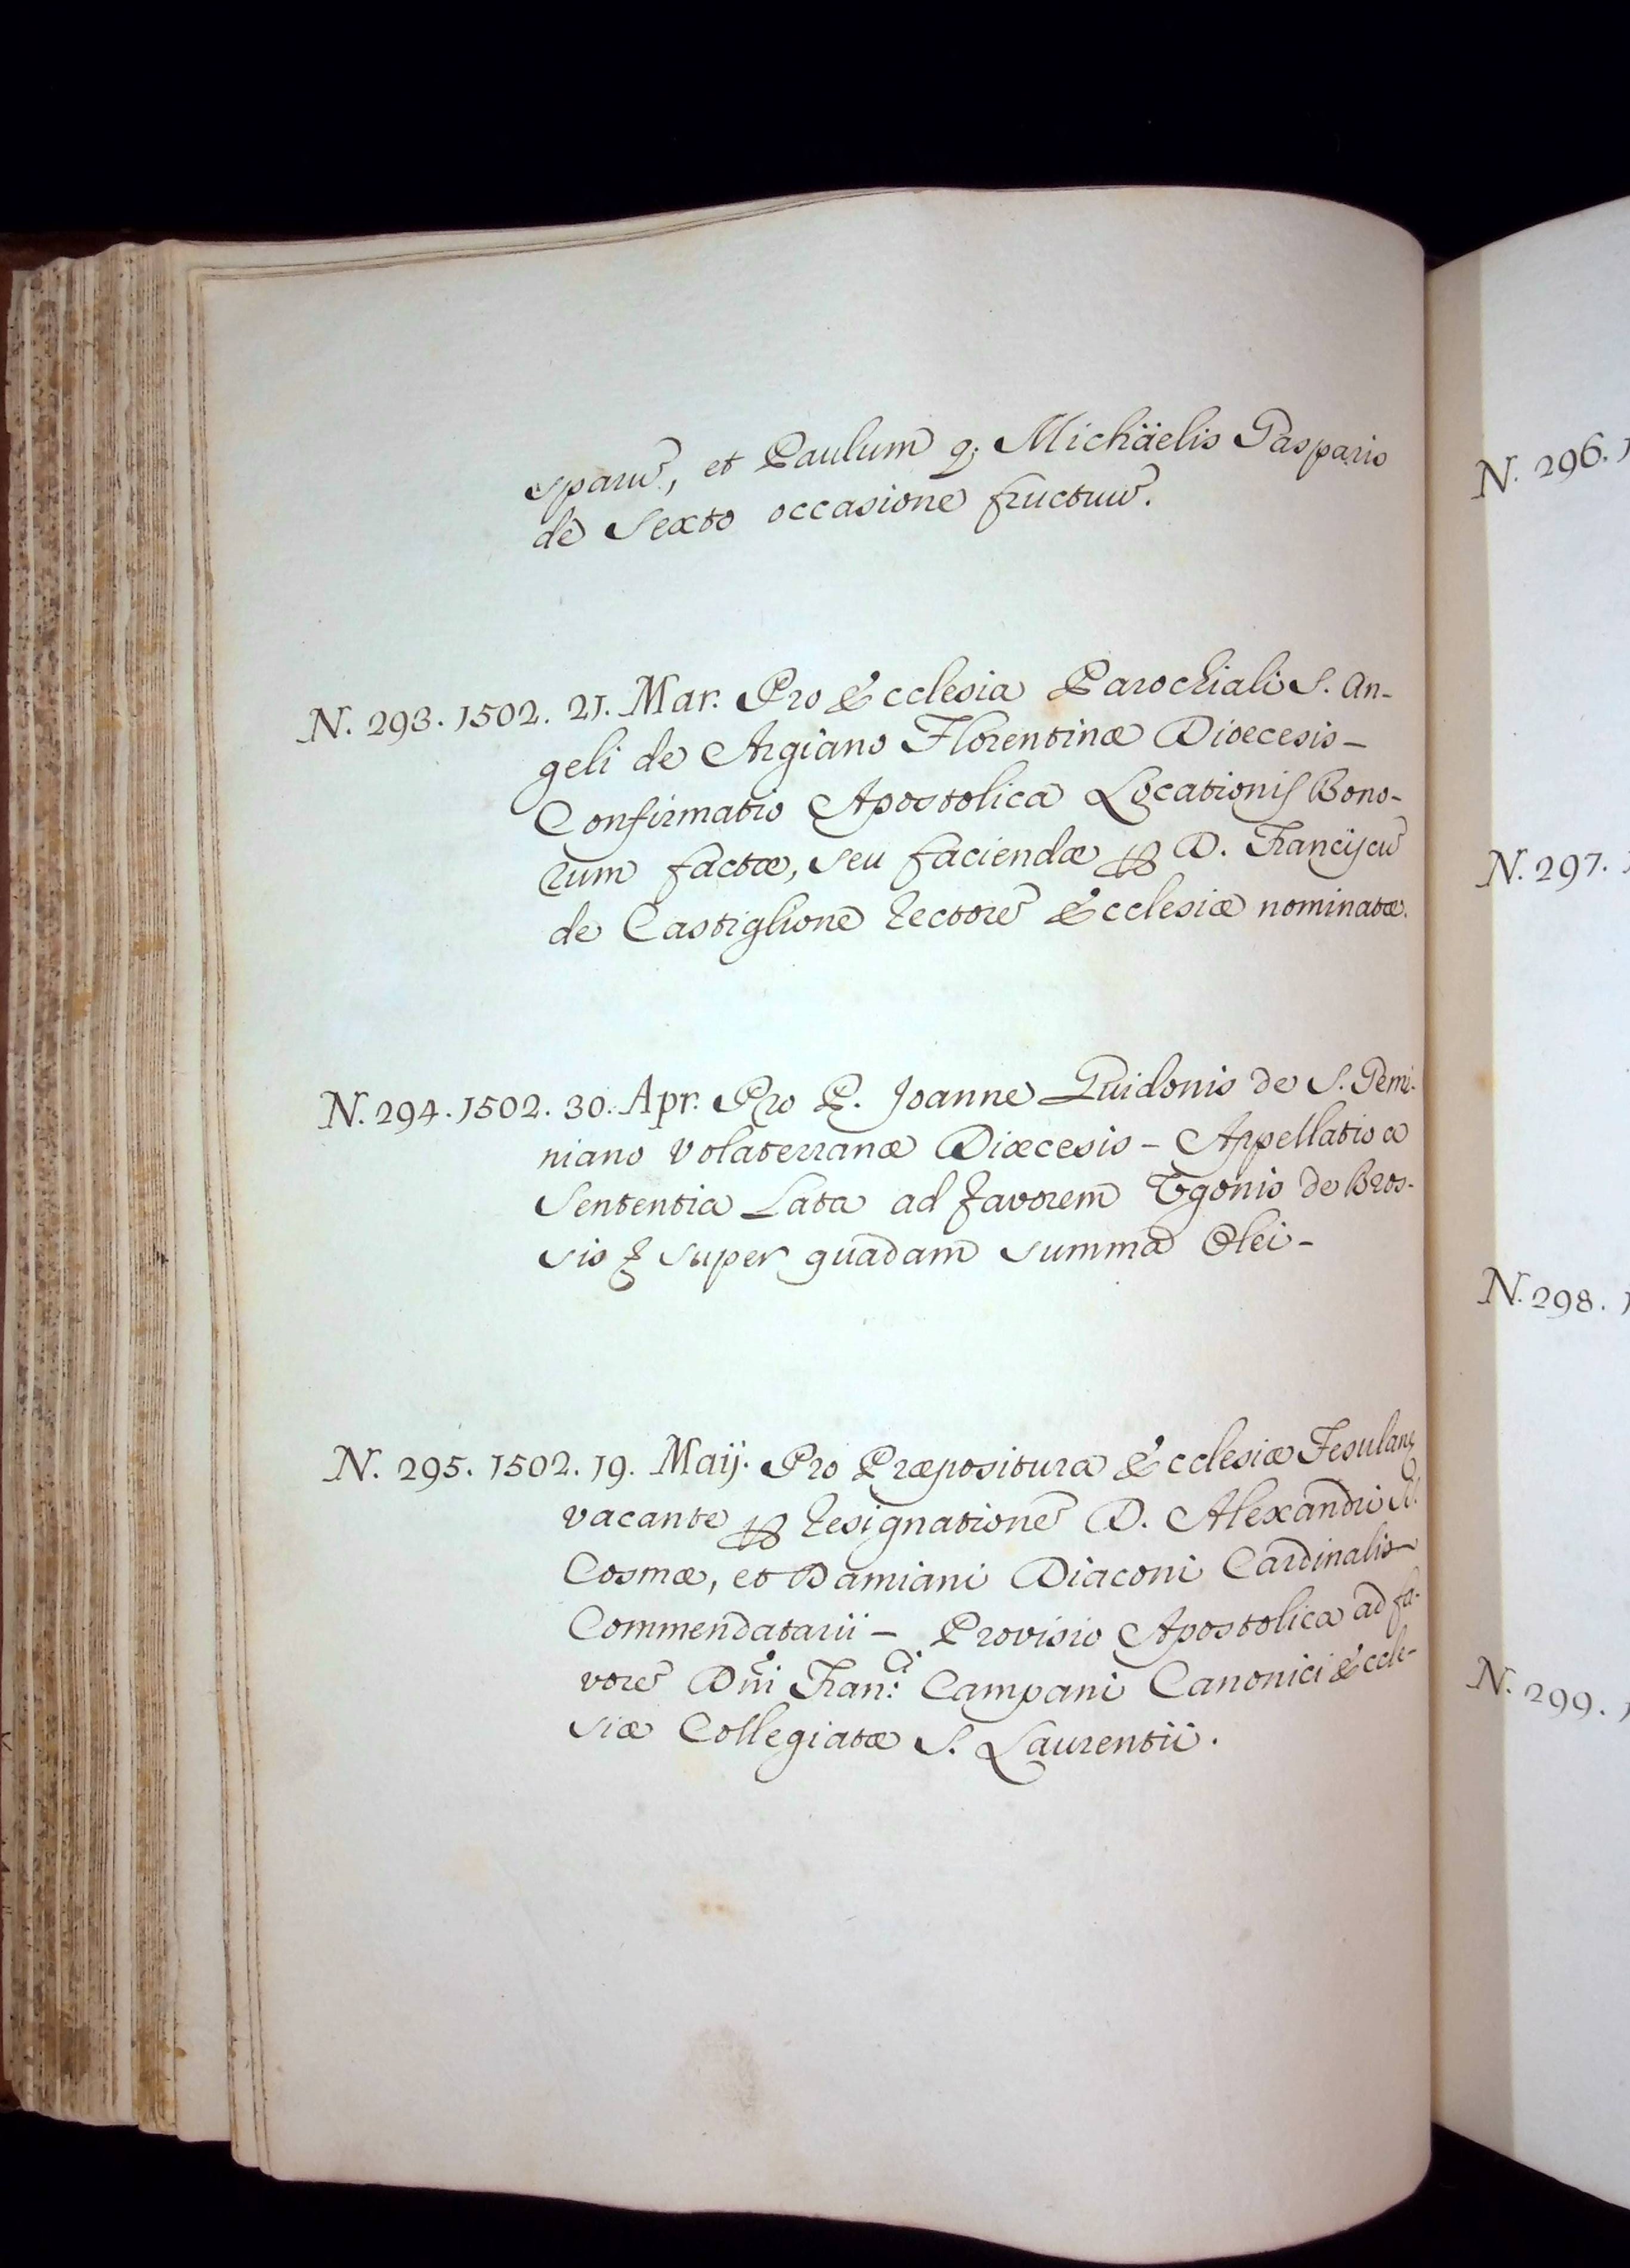 sparū, et Paulum q. Michäelis Gasparis
de Sexto occasione fructuū.
N. 293. 1502. 21. Mar. Pro Ecclesia Parochiali S. An-
geli de Argiano Florentinæ Dioecesis –
Confirmatio Apostolica Locationis Bono-
rum factæ, seu faciendæ ꝑ D. Franciscū
de Castiglione Rectorē Ecclesiæ nominatæ.
N. 294. 1502. 30. Apr. Pro P. Joanne Guidonis de S. Gemi-
niano Volaterranæ Diœcesis – Appellatio a
Sententia Lata ad favorem Ugonis de Bros-
sis super quadam summa Olei –
N. 295. 1502. 19. Maij. Pro Præpositura Ecclesiæ Fesulanę
vacante ꝑ Resignationē D. Alexandri
Cosmæ, et Damiani Diaconi Cardinalis
Commendatarii – Provisio Apostolica ad fa-
vorē Dñi Franci: Campani Canonici Eccle-
siæ Collegiatæ S. Laurentii.
N. 296. 1
N. 297. 1
N. 298. 1
N. 299. 1